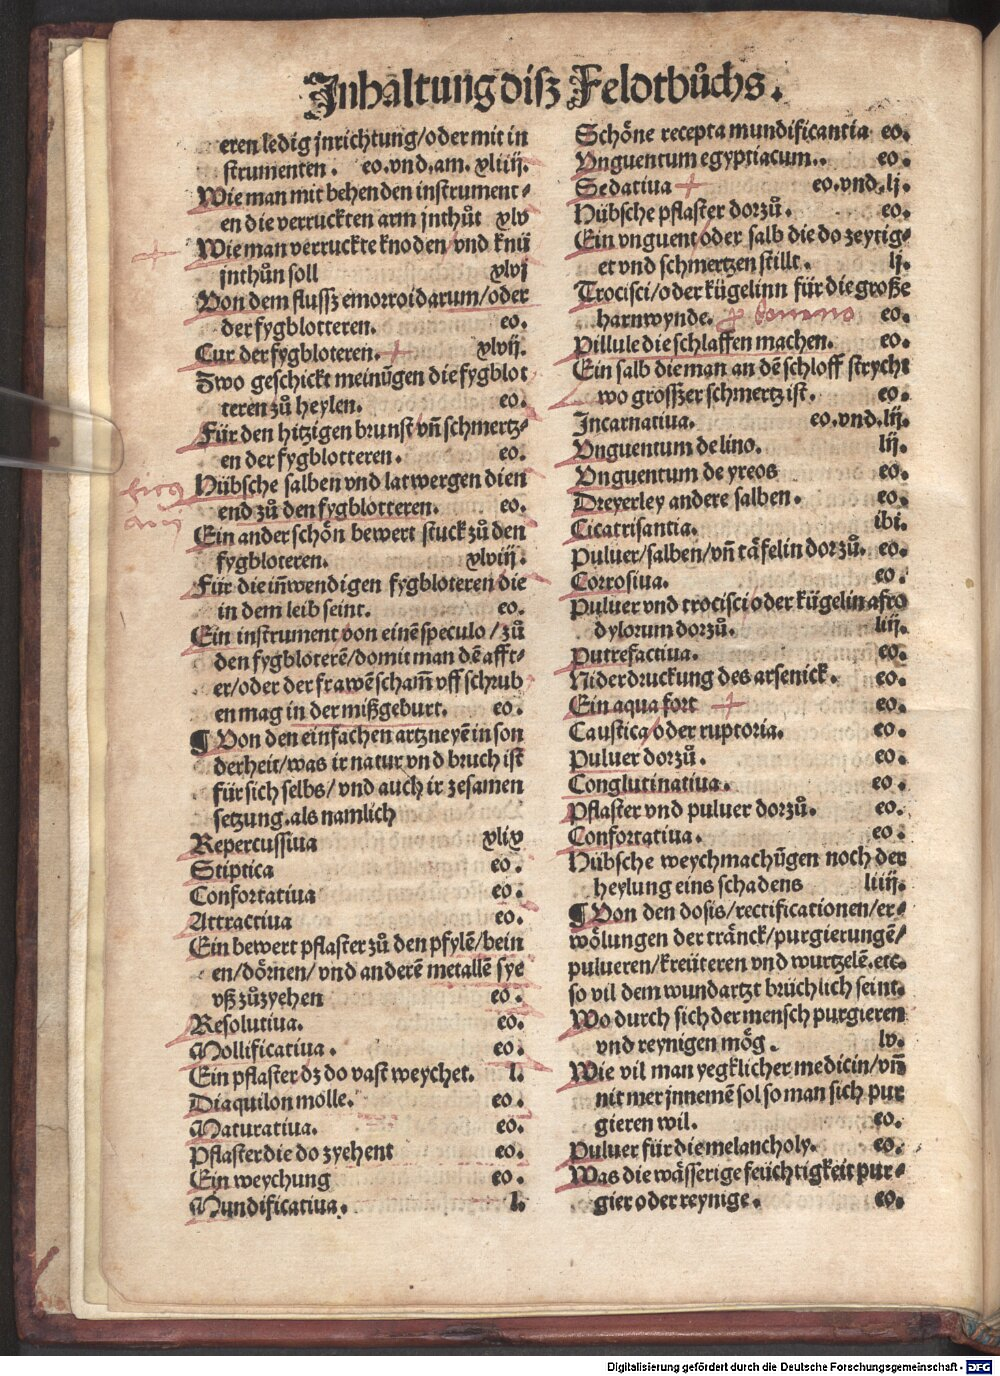 Inhaltung disz Feldtbůchs.
eren ledig jnrichtung/oder mit in
strumenten. eo.vnd.am. xliiij.
Wie man mit behenden instrument-
en die verruckten arm jnthůt xlv
Wie man verruckte knoden/vnd knü
jnthůn soll xlvj
Von dem flussz emorroidarum/oder
der fygblotteren. eo.
Cur der fygbloteren. xlvij.
Zwo geschickt meinūgen die fygblot
teren zů heylen. eo.
Für den hitzigen brunst vn̄ schmertz-
en der fygblotteren. eo.
Hübsche salben vnd latwergen dien
end zů den fygblotteren. eo.
Ein ander schön bewert stuck zů den
fygbloteren. xlviij.
Für die in̄wendigen fygbloteren die
in dem leib seint. eo.
Ein instrument von einē speculo/zů
den fygbloterē/domit man dē afft-
er/oder der frawē scham̄ vff schrub
en mag in der mißgeburt. eo.
¶ Von den einfachen artzneyē in son
derheit/was ir natur vnd bruch ist
für sich selbs/vnd auch ir zesamen
setzung.als namlich
Repercussiua xlix
Stiptica eo.
Confortatiua eo.
Attractiua eo.
Ein bewert pflaster zů den pfylē/bein
en/dörnen/vnd anderē metallē sye
vß zůzyehen eo.
Resolutiua. eo.
Mollificatiua. eo.
Ein pflaster dz do vast weychet. l.
Diaquilon molle. eo.
Maturatiua. eo.
Pflaster die do zyehent eo.
Ein weychung eo.
Mundificatiua. l.
Schöne recepta mundificantia eo.
Vnguentum egyptiacum.. eo.
Sedatiua eo.vnd.lj.
Hübsche pflaster dorzů. eo.
Ein vnguent oder salb die do zeytig-
et vnd schmertzen stillt. lj.
Trocisci/oder kügelinn für die große
harnwynde. eo.
Pillule die schlaffen machen. eo.
Ein salb die man an dē schloff strycht
wo grosszer schmertz ist. eo.
Incarnatiua. eo.vnd.lij.
Vnguentum de lino. lij.
Vnguentum de yreos eo.
Dreyerley andere salben. eo.
Cicatrisantia. ibi.
Puluer/salben/vn̄ täfelin dorzů. eo.
Corrosiua. eo.
Puluer vnd trocisci oder kügelin afro
dylorum dorzů. liij.
Putrefactiua. eo.
Niderdruckung des arsenick. eo.
Ein aqua fort eo.
Caustica oder ruptoria. eo.
Puluer dorzů. eo.
Conglutinatiua. eo.
Pflaster vnd puluer dorzů. eo.
Confortatiua. eo.
Hübsche weychmachūgen noch der
heylung eins schadens liiij.
¶ Von den dosis/rectificationen/er-
wölungen der tränck/purgierungē/
pulueren/kreüteren vnd wurtzelē.etc.
so vil dem wundartzt brüchlich seint.
Wo durch sich der mensch purgieren
vnd reynigen mög. lv.
Wie vil man yegklicher medicin/vn̄
nit mer jnnemē sol so man sich pur
gieren wil. eo.
Puluer für die melancholy. eo.
Was die wässerige feüchtigkeit pur-
gier oder reynige. eo.
Digitalisierung gefördert durch die Deutsche Forschungsgemeinschaft - DFG